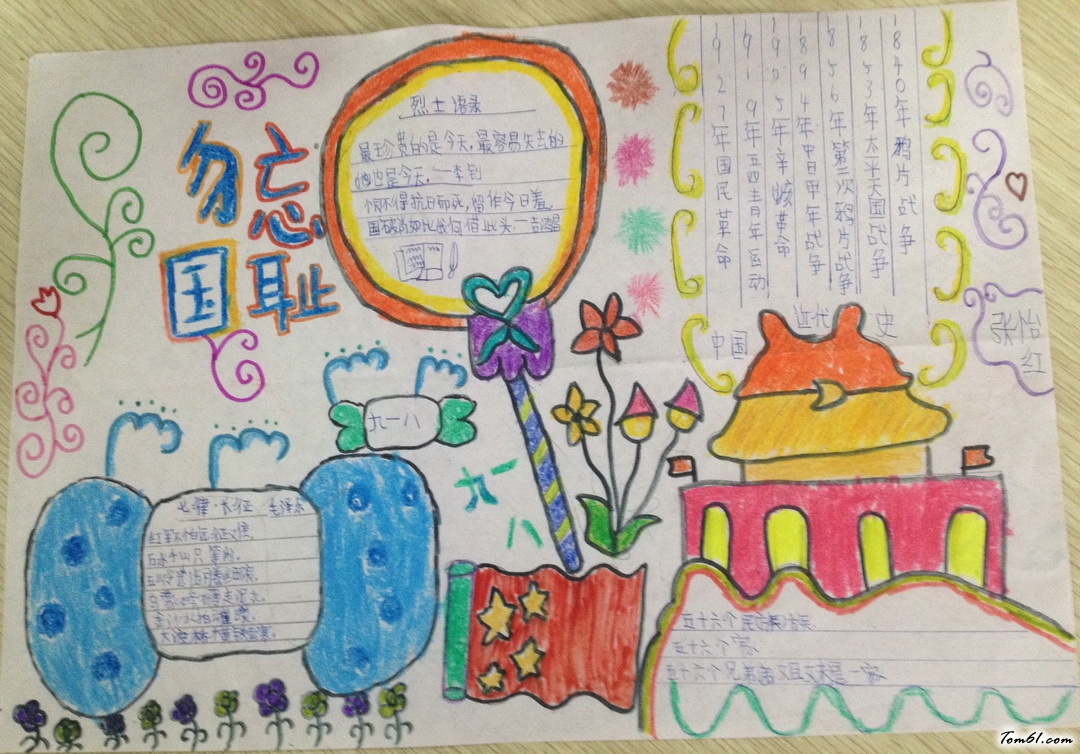 勿忘
国耻
烈士语录
最珍贵的是今天,最容易失去的
也是今天,—李钊
恨不得抗日而死,留作今日羞,
国破尚如此我何惜此头.—吉鸿昌
1840年鸦片战争
1853年太平天国战争
1856年第二次鸦片战争
1894年中日甲午战争
1905年辛亥革命
1919年五四青年运动
1927年国民革命
中国近代史
张怡
红
九一八
九一八
七律·长征 毛泽东
红军不怕远征难,
万水千山只等闲.
五十六个民族
五十六个家
五十六个兄弟
是一家
Tom61.com